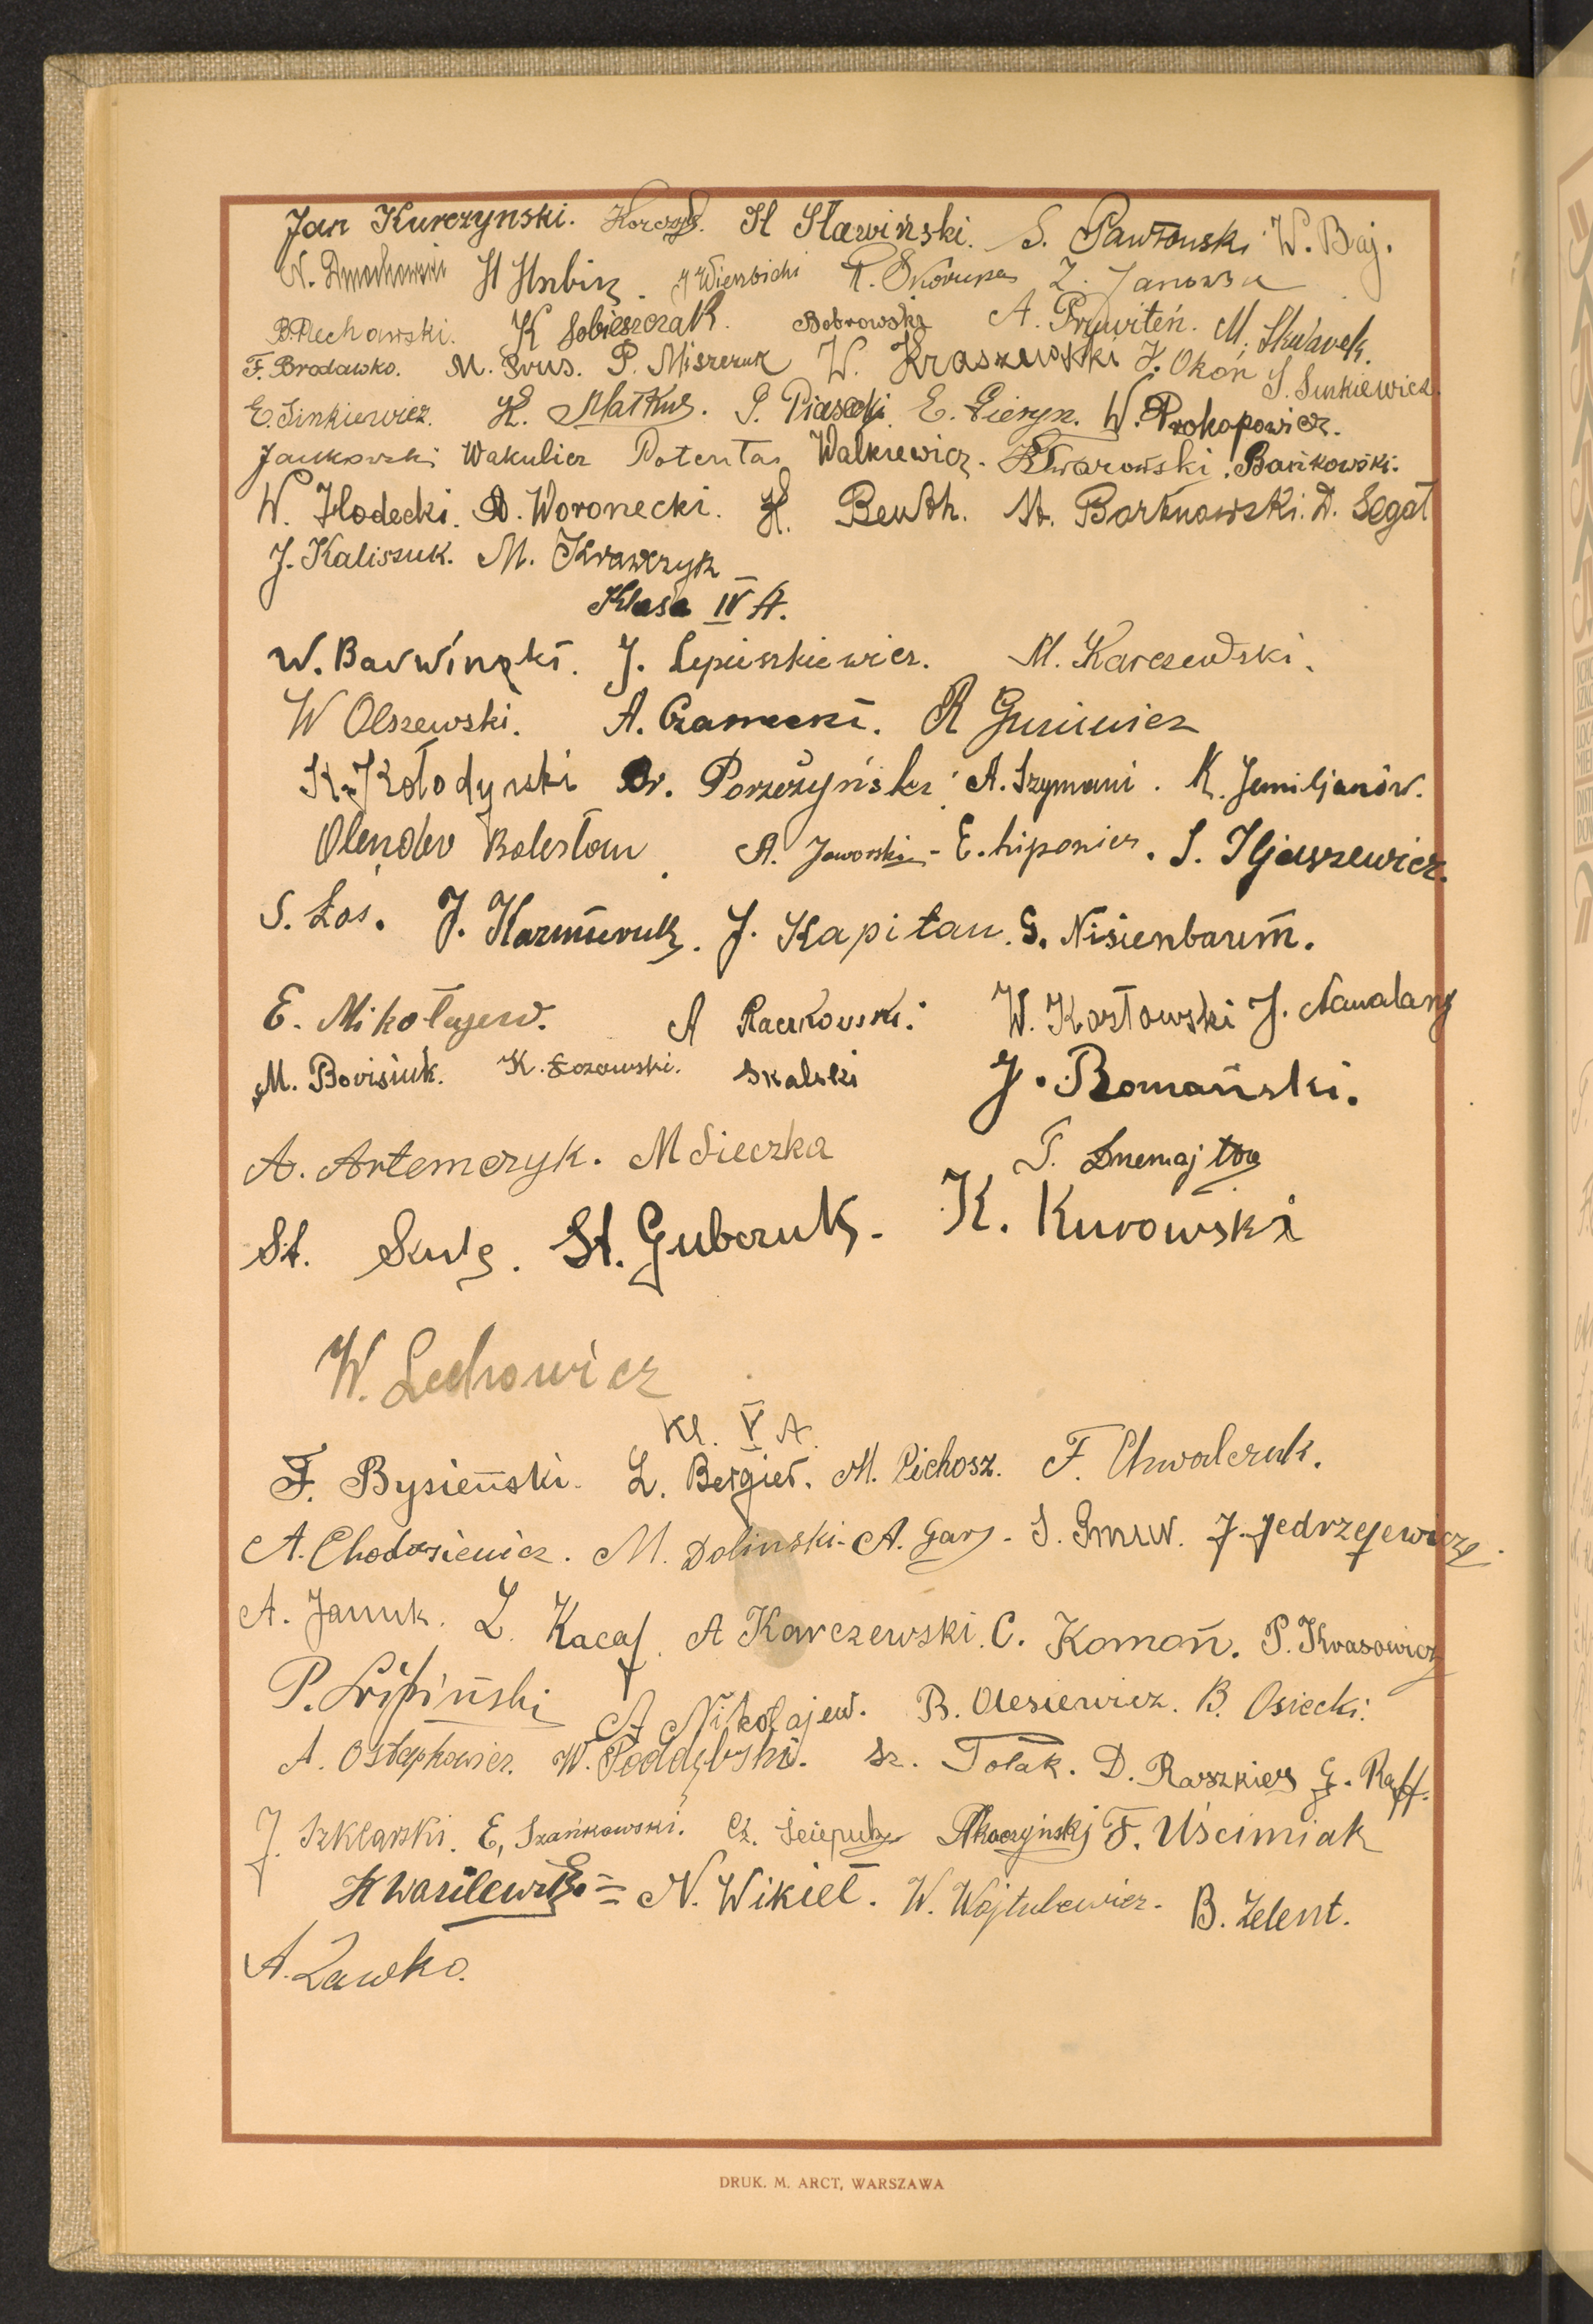 Jan Kurczynski. H Sławiński. S. Pawłowski W. Baj.
N. Dmochowski H Hrbin. Wierzbicki R. Skorupa Z. Janowski
B. Piechowski. K Sobieszczak. Bobrowski A. Prywiteń. M. Skwarek.
F. Brodawko. M. Prus. P. Miszczuk W. Kraszewski J. Okoń S. Sinkiewicz.
E. Sinkiewicz. K. Matkus. P. Piasecki. E. Pieryn. W. Prokopowicz.
Jankowski Wakulicz Potentas Walkiewicz. Twarowski. Bańkowski.
W. Hodecki. A. Woronecki. H. Beuth. St. Bartnowski. D. Segał
J. Kaliszuk. M. Krawczyk
Klasa IV A.
W. Barwinski. J. Lepieszkiewicz. M. Karczewski.
W Olszewski. A. Czarnecki. R
K. Kołodyński Br. Porzeżyński A. Szymani. K. Jemiljanów.
Olender Bolesław. A. Jaworski - E. Liponicz. S. Iljaszewicz.
S. Łoś. J. Kaźmieruk. J. Kapitan. S. Nisienbaum.
E. Mikołajew. A Raczkowski. W. Kozłowski J. Nawalany
M. Borisiuk. K. Łozowski. Skalski J. Romański.
A. Artemczyk. M Sieczka
St. St. Gubczuk. K. Kurowski
W. Lechowicz
Kl. V A.
F. Bysieński. L. Bergier. M. Cichosz. F. Chwalczuk.
A. Chodosiewicz. M. Doliński. A. Gary. S. Gmur. J. Jedrzejewicz.
A. Januk. L. Kacaf. A Karczewski. C. Komoń. P. Kwasowicz
P. Lipiński A Nikołajew. B. Olesiewicz. B. Osiecki.
A. Ostapkowicz. W. Poddębski. Sz. Polak. D. Raszkies G. Raff.
J. Szklarski. E. Szańkowski. Cz. Ściepuk F. Uścimiak
H Wasilewski = N. Wikieł. W. Wojtulewicz. B. Zelent.
A. Zawko.
DRUK. M. ARCT, WARSZAWA